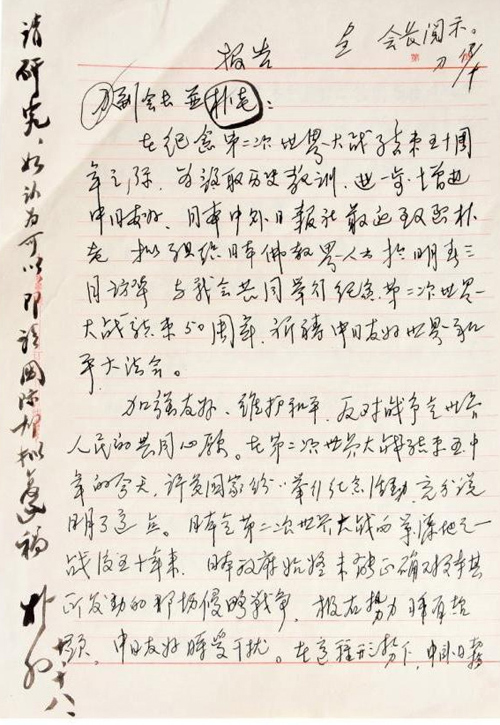 呈 会长阅示。
报告
刀副会长并朴老:
在纪念第二次世界大战结束五十周
年之际,为汲取历史教训,进一步增进
中日友好,日本中外日报社最近致函朴
老,拟组织日本佛教界人士于明春三
月访华,与我会共同举行纪念第二次世界
大战结束50周年,祈祷中日友好世界和
平大法会。
加强友好、维护和平、反对战争是世界
人民的共同心愿。在第二次世界大战结束五十
年的今天,许多国家纷纷举行纪念活动,充分说
明了这点。日本是第二次世界大战的策源地之一
战后五十年来,日本政府始终未能正确对待其
所发动的那场侵略战争,极右势力时有抬
头,中日友好时受干扰。在这种形势下,中外日报
请研究,如认为可以,即请国际部拟复稿
朴初
十八